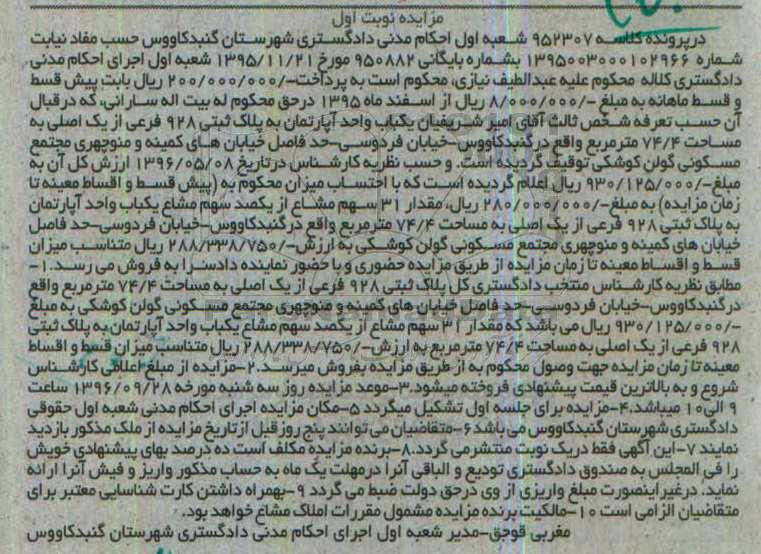 مزایده نوبت اول
درپرونده کلاسه ۹۵۲۳۰۷ شعبه اول احکام مدنی دادگستری شهرستان گنبدکاووس حسب مفاد نیابت
شماره ۱۳۹۵۰۰۳۰۰۰۱۰۲۹۶۶ بشماره بایگانی ۹۵۰۸۸۲ مورخ ۱۳۹۵/۱۱/۲۱ شعبه اول اجرای احکام مدنی
دادگستری کلاله محکوم علیه عبدالطیف نیازی، محکوم است به پرداخت-/۲۰۰/۰۰۰/۰۰۰ ریال بابت پیش قسط
و قسط ماهانه به مبلغ -/۸/۰۰۰/۰۰۰ ریال از اسفند ماه ۱۳۹۵ درحق محکوم له بیت اله سارانی، که درقبال
آن حسب تعرفه شخص ثالث آقای امیر شریفیان یکباب واحد آپارتمان به پلاک ثبتی ۹۲۸ فرعی از یک اصلی به
مساحت ۷۴/۴ مترمربع واقع درگنبدکاووس-خیابان فردوسی-حد فاصل خیابان های کمینه و منوچهری مجتمع
مسکونی گولن کوشکی توقیف گردیده است. و حسب نظریه کارشناس درتاریخ ۱۳۹۶/۰۵/۰۸ ارزش کل آن به
مبلغ-/۹۳۰/۱۲۵/۰۰۰ ریال اعلام گردیده است که با احتساب میزان محکوم به (پیش قسط و اقساط معینه تا
زمان مزایده) به مبلغ-/۲۸۰/۰۰۰/۰۰۰ ریال، مقدار ۳۱ سهم مشاع از یکصد سهم مشاع یکباب واحد آپارتمان
به پلاک ثبتی ۹۲۸ فرعی از یک اصلی به مساحت ۷۴/۴ مترمربع واقع درگنبدکاووس-خیابان فردوسی-حد فاصل
خیابان های کمینه و منوچهری مجتمع مسکونی گولن کوشکی به ارزش-/۲۸۸/۳۳۸/۷۵۰ ریال متناسب میزان
قسط و اقساط معینه تا زمان مزایده از طریق مزایده حضوری و با حضور نماینده دادسرا به فروش می رسد.۱-
مطابق نظریه کارشناس منتخب دادگستری کل پلاک ثبتی ۹۲۸ فرعی از یک اصلی به مساحت ۷۴/۴ مترمربع واقع
درگنبدکاووس-خیابان فردوسی-حد فاصل خیابان های کمینه و منوچهری مجتمع مسکونی گولن کوشکی به مبلغ
-/۹۳۰/۱۲۵/۰۰۰ ریال می باشد که مقدار ۳۱ سهم مشاع از یکصد سهم مشاع یکباب واحد آپارتمان به پلاک ثبتی
۹۲۸ فرعی از یک اصلی به مساحت ۷۴/۴ مترمربع به ارزش-/۲۸۸/۳۳۸/۷۵۰ ریال متناسب میزان قسط و اقساط
معینه تا زمان مزایده جهت وصول محکوم به از طریق مزایده بفروش میرسد.۲-مزایده از مبلغ اعلامی کارشناس
شروع و به بالاترین قیمت پیشنهادی فروخته میشود.۳-موعد مزایده روز سه شنبه مورخه ۱۳۹۶/۰۹/۲۸ ساعت
۹ الی۱۰ میباشد.۴-مزایده برای جلسه اول تشکیل میگردد ۵-مکان مزایده اجرای احکام مدنی شعبه اول حقوقی
دادگستری شهرستان گنبدکاووس می باشد۶-متقاضیان می توانند پنج روز قبل ازتاریخ مزایده از ملک مذکور بازدید
نمایند ۷-این آگهی فقط دریک نوبت منتشرمی گردد.۸-برنده مزایده مکلف است ده درصد بهای پیشنهادی خویش
را فی المجلس به صندوق دادگستری تودیع و الباقی آنرا درمهلت یک ماه به حساب مذکور واریز و فیش آنرا ارائه
نماید. درغیراینصورت مبلغ واریزی از وی درحق دولت ضبط می گردد ۹-بهمراه داشتن کارت شناسایی معتبر برای
متقاضیان الزامی است ۱۰-مالکیت برنده مزایده مشمول مقررات املاک مشاع خواهد بود.
مغربی قوجق-مدیر شعبه اول اجرای احکام مدنی دادگستری شهرستان گنبدکاووس